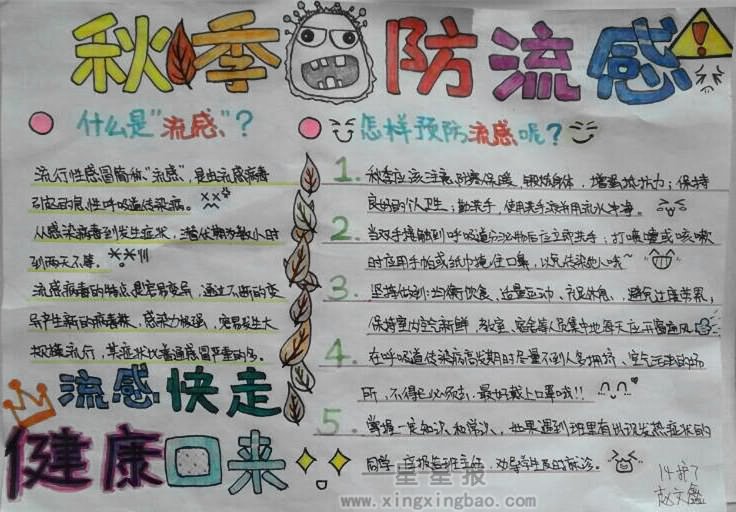 秋季防流感
什么是"流感"?
流行性感冒简称"流感",是由流感病毒
引起的急性呼吸道传染病。
从感染病毒到发生症状,潜伏期为数小时
到两天不等。
流感病毒的特点是容易变异,通过不断的变
异产生新的病毒株,感染力极强,容易发生大
规模流行,其症状比普通感冒严重的多。
流感快走
健康回来
怎样预防流感呢?
1. 秋季应该注意防寒保暖,锻炼身体,增强抵抗力;保持
良好的个人卫生;勤洗手,使用洗手液并用流水冲净。
2. 当双手接触到呼吸道分泌物后应立即洗手;打喷嚏或咳嗽
时应用手帕或纸巾掩住口鼻,以免传染他人哦~
3. 坚持做到:均衡饮食、适量运动、充足休息、避免过度劳累,
保持室内空气新鲜,教室、宿舍等人员集中地每天应开窗通风
4. 在呼吸道传染病高发期时尽量不到人多拥挤、空气污浊的场
所,不得已必须去,最好戴上口罩哦!!
5. 掌握一定知识和常识,如果遇到班里有出现发热症状的
同学,应报告班主任,劝导学生及时就诊。
14护7
赵文鑫
一星星报
www.xingxingbao.com